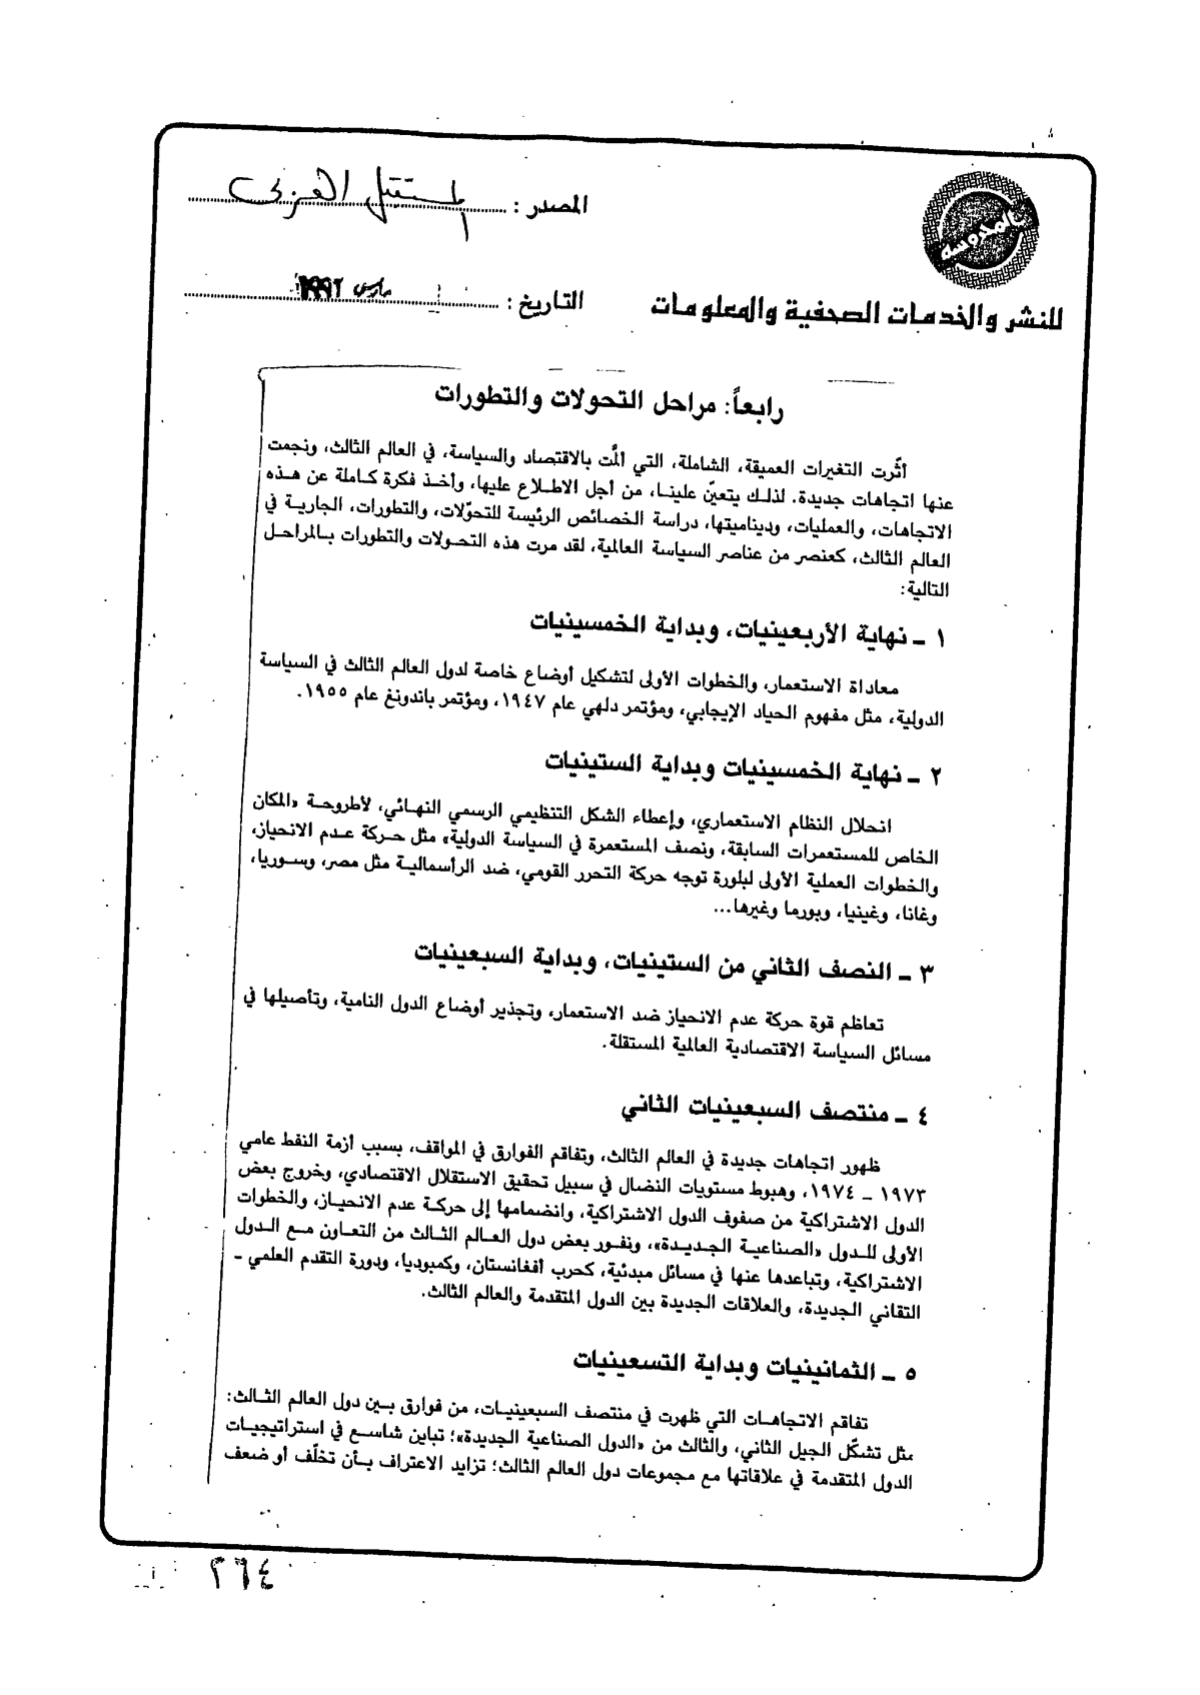 المدوسة
للنشر والخدمات الصحفية والمعلومات
المصدر : المستقبل العربي
التاريخ : مارس ١٩٩٢
رابعاً: مراحل التحولات والتطورات
أثّرت التغيرات العميقة، الشاملة، التي ألمّت بالاقتصاد والسياسة، في العالم الثالث، ونجمت
عنها اتجاهات جديدة. لذلك يتعيّن علينا، من أجل الاطلاع عليها، وأخذ فكرة كاملة عن هذه
الاتجاهات، والعمليات، وديناميتها، دراسة الخصائص الرئيسة للتحوّلات، والتطورات، الجارية في
العالم الثالث، كعنصر من عناصر السياسة العالمية، لقد مرت هذه التحولات والتطورات بالمراحل
التالية:
١ ـ نهاية الأربعينيات، وبداية الخمسينيات
معاداة الاستعمار، والخطوات الأولى لتشكيل أوضاع خاصة لدول العالم الثالث في السياسة
الدولية، مثل مفهوم الحياد الإيجابي، ومؤتمر دلهي عام ١٩٤٧، ومؤتمر باندونغ عام ١٩٥٥.
٢ ـ نهاية الخمسينيات وبداية الستينيات
انحلال النظام الاستعماري، وإعطاء الشكل التنظيمي الرسمي النهائي، لأطروحة «المكان
الخاص للمستعمرات السابقة، ونصف المستعمرة في السياسة الدولية» مثل حركة عدم الانحياز،
والخطوات العملية الأولى لبلورة توجه حركة التحرر القومي، ضد الرأسمالية مثل مصر، وسوريا،
وغانا، وغينيا، وبورما وغيرها...
٣ ـ النصف الثاني من الستينيات، وبداية السبعينيات
تعاظم قوة حركة عدم الانحياز ضد الاستعمار، وتجذير أوضاع الدول النامية، وتأصيلها في
مسائل السياسة الاقتصادية العالمية المستقلة.
٤ ـ منتصف السبعينيات الثاني
ظهور اتجاهات جديدة في العالم الثالث، وتفاقم الفوارق في المواقف، بسبب أزمة النفط عامي
١٩٧٣ ـ ١٩٧٤، وهبوط مستويات النضال في سبيل تحقيق الاستقلال الاقتصادي، وخروج بعض
الدول الاشتراكية من صفوف الدول الاشتراكية، وانضمامها إلى حركة عدم الانحياز، والخطوات
الأولى للدول «الصناعية الجديدة»، ونفور بعض دول العالم الثالث من التعاون مع الدول
الاشتراكية، وتباعدها عنها في مسائل مبدئية، كحرب أفغانستان، وكمبوديا، ودورة التقدم العلمي ـ
التقاني الجديدة، والعلاقات الجديدة بين الدول المتقدمة والعالم الثالث.
٥ ـ الثمانينيات وبداية التسعينيات
تفاقم الاتجاهات التي ظهرت في منتصف السبعينيات، من فوارق بين دول العالم الثالث:
مثل تشكّل الجيل الثاني، والثالث من «الدول الصناعية الجديدة»؛ تباين شاسع في استراتيجيات
الدول المتقدمة في علاقاتها مع مجموعات دول العالم الثالث؛ تزايد الاعتراف بأن تخلّف أو ضعف
٢٦٤